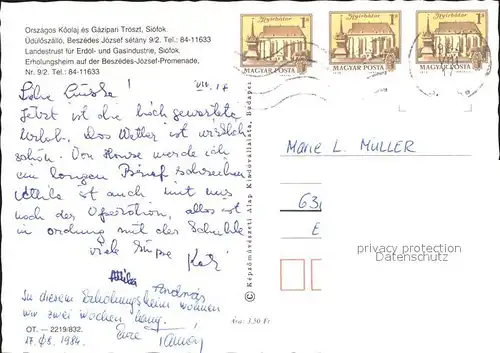 Országos Kőolaj és Gázipari Tröszt, Siófok
Üdülőszálló, Beszédes József sétány 9/2. Tel.: 84-11633
Landestrust für Erdöl- und Gasindustrie, Siófok.
Erholungsheim auf der Beszédes-József-Promenade,
Nr. 9/2. Tel.: 84-11633
Nyírbátor
1 Ft
MAGYAR POSTA
Nyírbátor
1 Ft
MAGYAR POSTA
1 Ft
MAGYAR POSTA
VIII. 17
Liebe
Jetzt ist die hoch gewartete
Urlaub. Das Wetter ist wirklich
schön. Von Hause werde ich
ein langen Brief schreiben
Attila ist auch mit uns
nach der Operation, alles ist
in ordnung mit der Schule
viele Küsse Kati
Attila
András
In diesem Erholungsheim wohnen
wir zwei Wochen lang.
Eure Tamás
OT. — 2219/832.
17. 08. 1984.
Ára: 3,50 Ft
© Képzőművészeti Alap Kiadóvállalata, Budapest
MARIE L. MÜLLER
63
E
privacy protection
Datenschutz